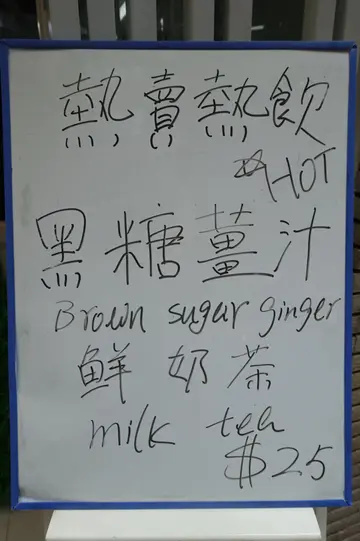 熱賣熱飲
HOT
黑糖薑汁
Brown sugar ginger
鮮奶茶
milk tea
$25